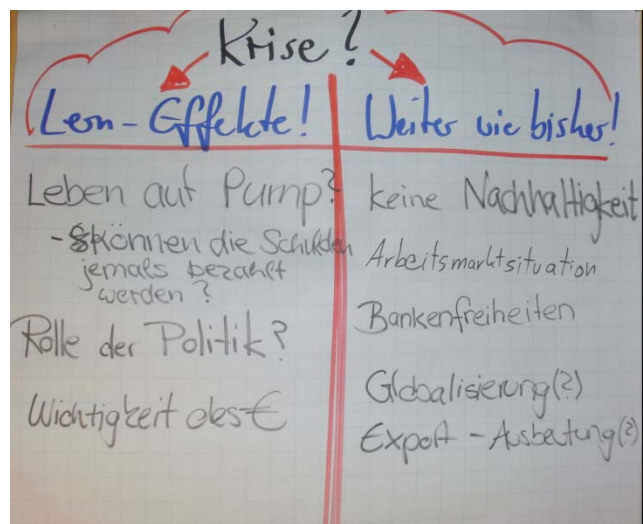 Krise?
Lern-Effekte!
Leben auf Pump?
- können die Schulden
jemals bezahlt
werden?
Rolle der Politik?
Wichtigkeit des €
Weiter wie bisher!
keine Nachhaltigkeit
Arbeitsmarktsituation
Bankenfreiheiten
Globalisierung(?)
Export - Ausbeutung(?)